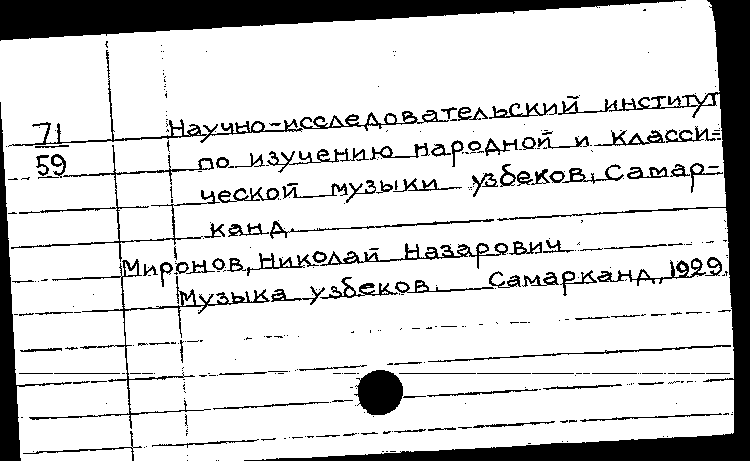 71 Научно-исследовательский институт
59 по изучению народной и класси-
ческой музыки узбеков, Самар-
канд.
Миронов, Николай Назарович
Музыка узбеков. Самарканд, 1929.